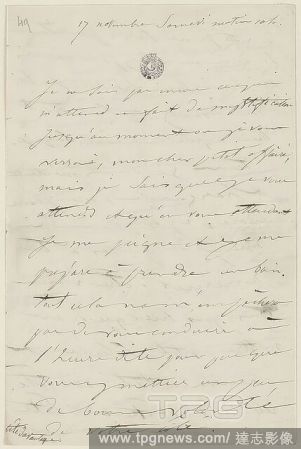 49
17 novembre Samedi matin
Je ne sais pas encore ce qui
m'attend en fait de mystification
jusqu'au moment où je vous
verrai, mon cher petit
mais je sais que je vous
attends et qu'on vous
Je me peigne et je me
prépare à prendre un bain
tout cela ne m'empêchera
pas de vous conduire à
l'heure dite pour peu que
vous y mettiez un peu
de bonne volonté
de votre côté
TPG
IMAGES
www.tpgnews.com/ 達志影像